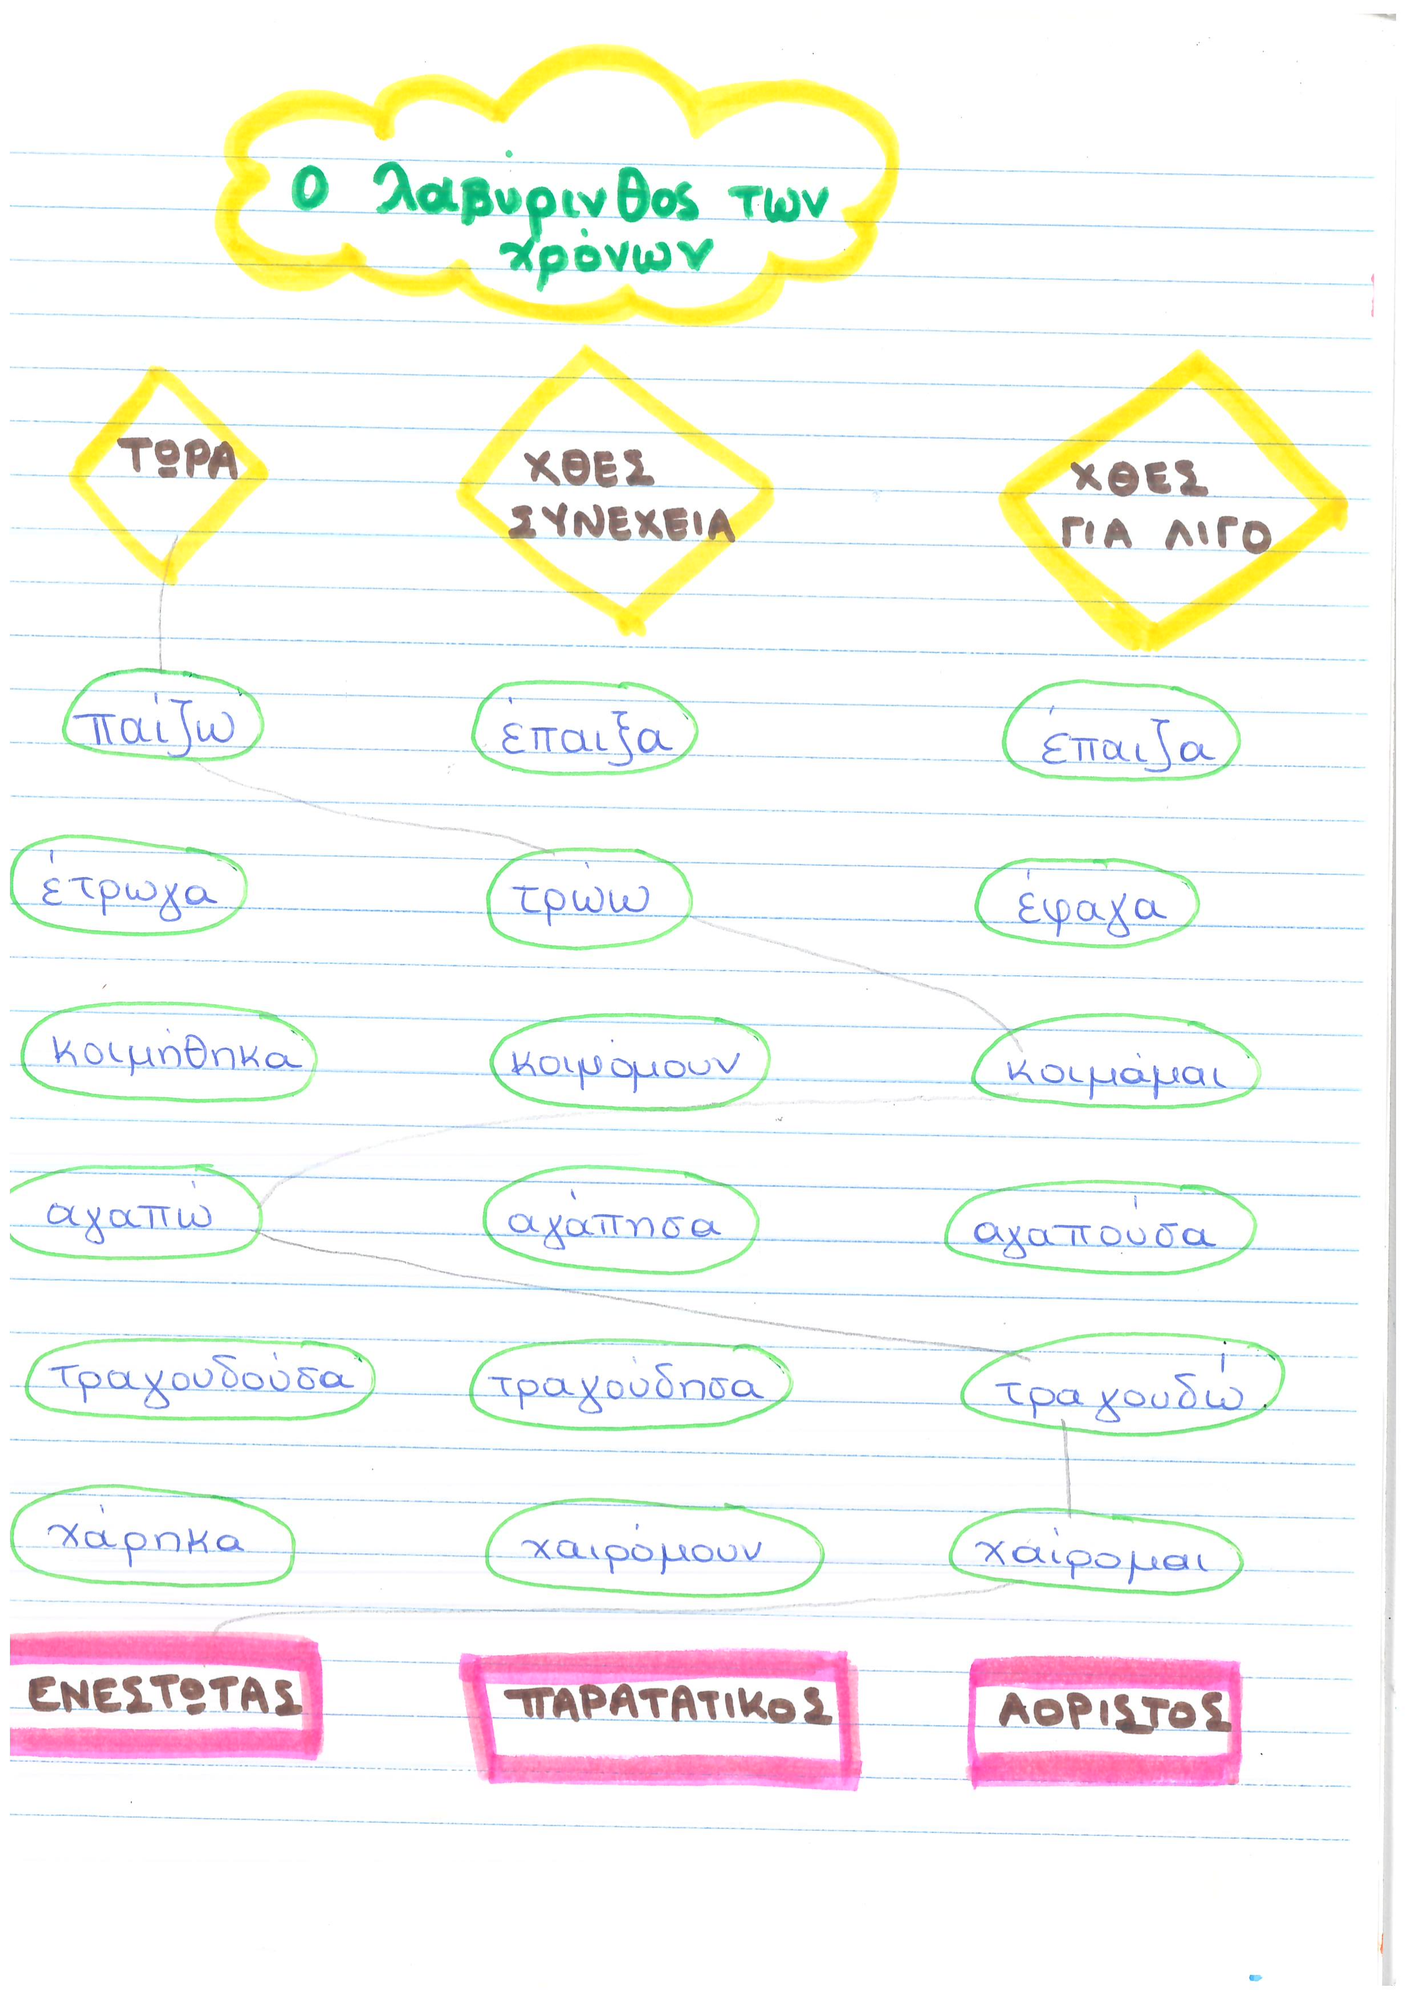 Ο λαβύρινθος των
χρόνων
ΤΩΡΑ ΧΘΕΣ ΣΥΝΕΧΕΙΑ ΧΘΕΣ ΓΙΑ ΛΙΓΟ
παίζω έπαιξα έπαιζα
έτρωγα τρώω έφαγα
κοιμήθηκα κοιμόμουν κοιμάμαι
αγαπώ αγάπησα αγαπούσα
τραγουδούσα τραγούδησα τραγουδώ
χάρηκα χαιρόμουν χαίρομαι
ΕΝΕΣΤΩΤΑΣ ΠΑΡΑΤΑΤΙΚΟΣ ΑΟΡΙΣΤΟΣ